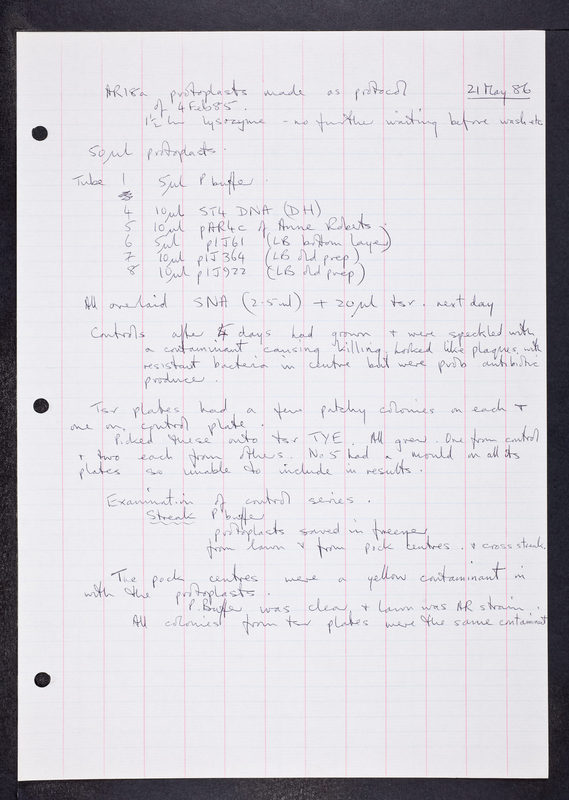 AR18a protoplasts made as protocol 21 May 86
of 4 Feb 85.
1½ hr lysozyme - no further waiting before wash etc
50 µl protoplasts.
Tube 1 5 µl P buffer.
4 10 µl ST4 DNA (DH)
5 10 µl pAR4c of Anne Roberts.
6 5 µl pIJ61 (LB bottom layer)
7 10 µl pIJ364 (LB old prep)
8 10 µl pIJ922 (LB old prep)
All overlaid SNA (2.5 ml) + 20 µl tsr. next day
Controls after 4 days had grown & were speckled with
a contaminant causing killing. Looked like plaques with
resistant bacteria in centre but were prob antibiotic
produce.
Tsr plates had a few patchy colonies on each &
one on control plate.
Picked these onto tsr TYE. All grew. One from control
& two each from others. No 5 had a mould on all its
plates so unable to include in results.
Examination of control series.
Streak P buffer
protoplasts saved in freezer
from lawn & from pock centres. & cross streak.
The pock centres were a yellow contaminant in
with the protoplasts.
P. Buffer was clear, & lawn was AR strain.
All colonies from tsr plates were the same contaminant